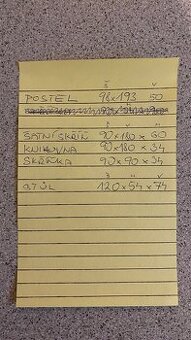 Š V
POSTEL 98x193 50
Š V
ŠATNÍ SKŘÍŇ 90x180x60
KNIHOVNA 90x180x34
SKŘÍŇKA 90x90x34
Š V
STŮL 120x54x74